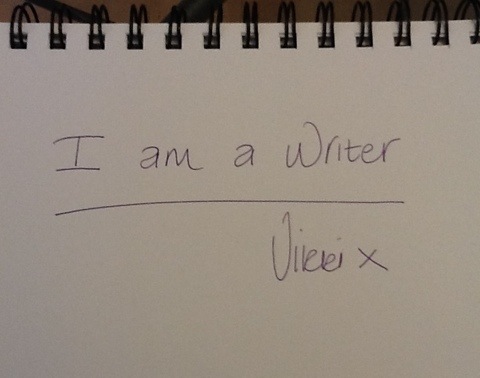 I am a Writer
Vikki x